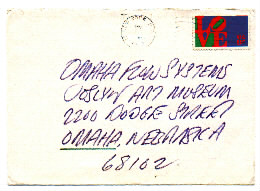 LOVE
OMAHA FLOW SYSTEMS
JOSLYN ART MUSEUM
2200 DODGE STREET
OMAHA, NEBRASKA
68102